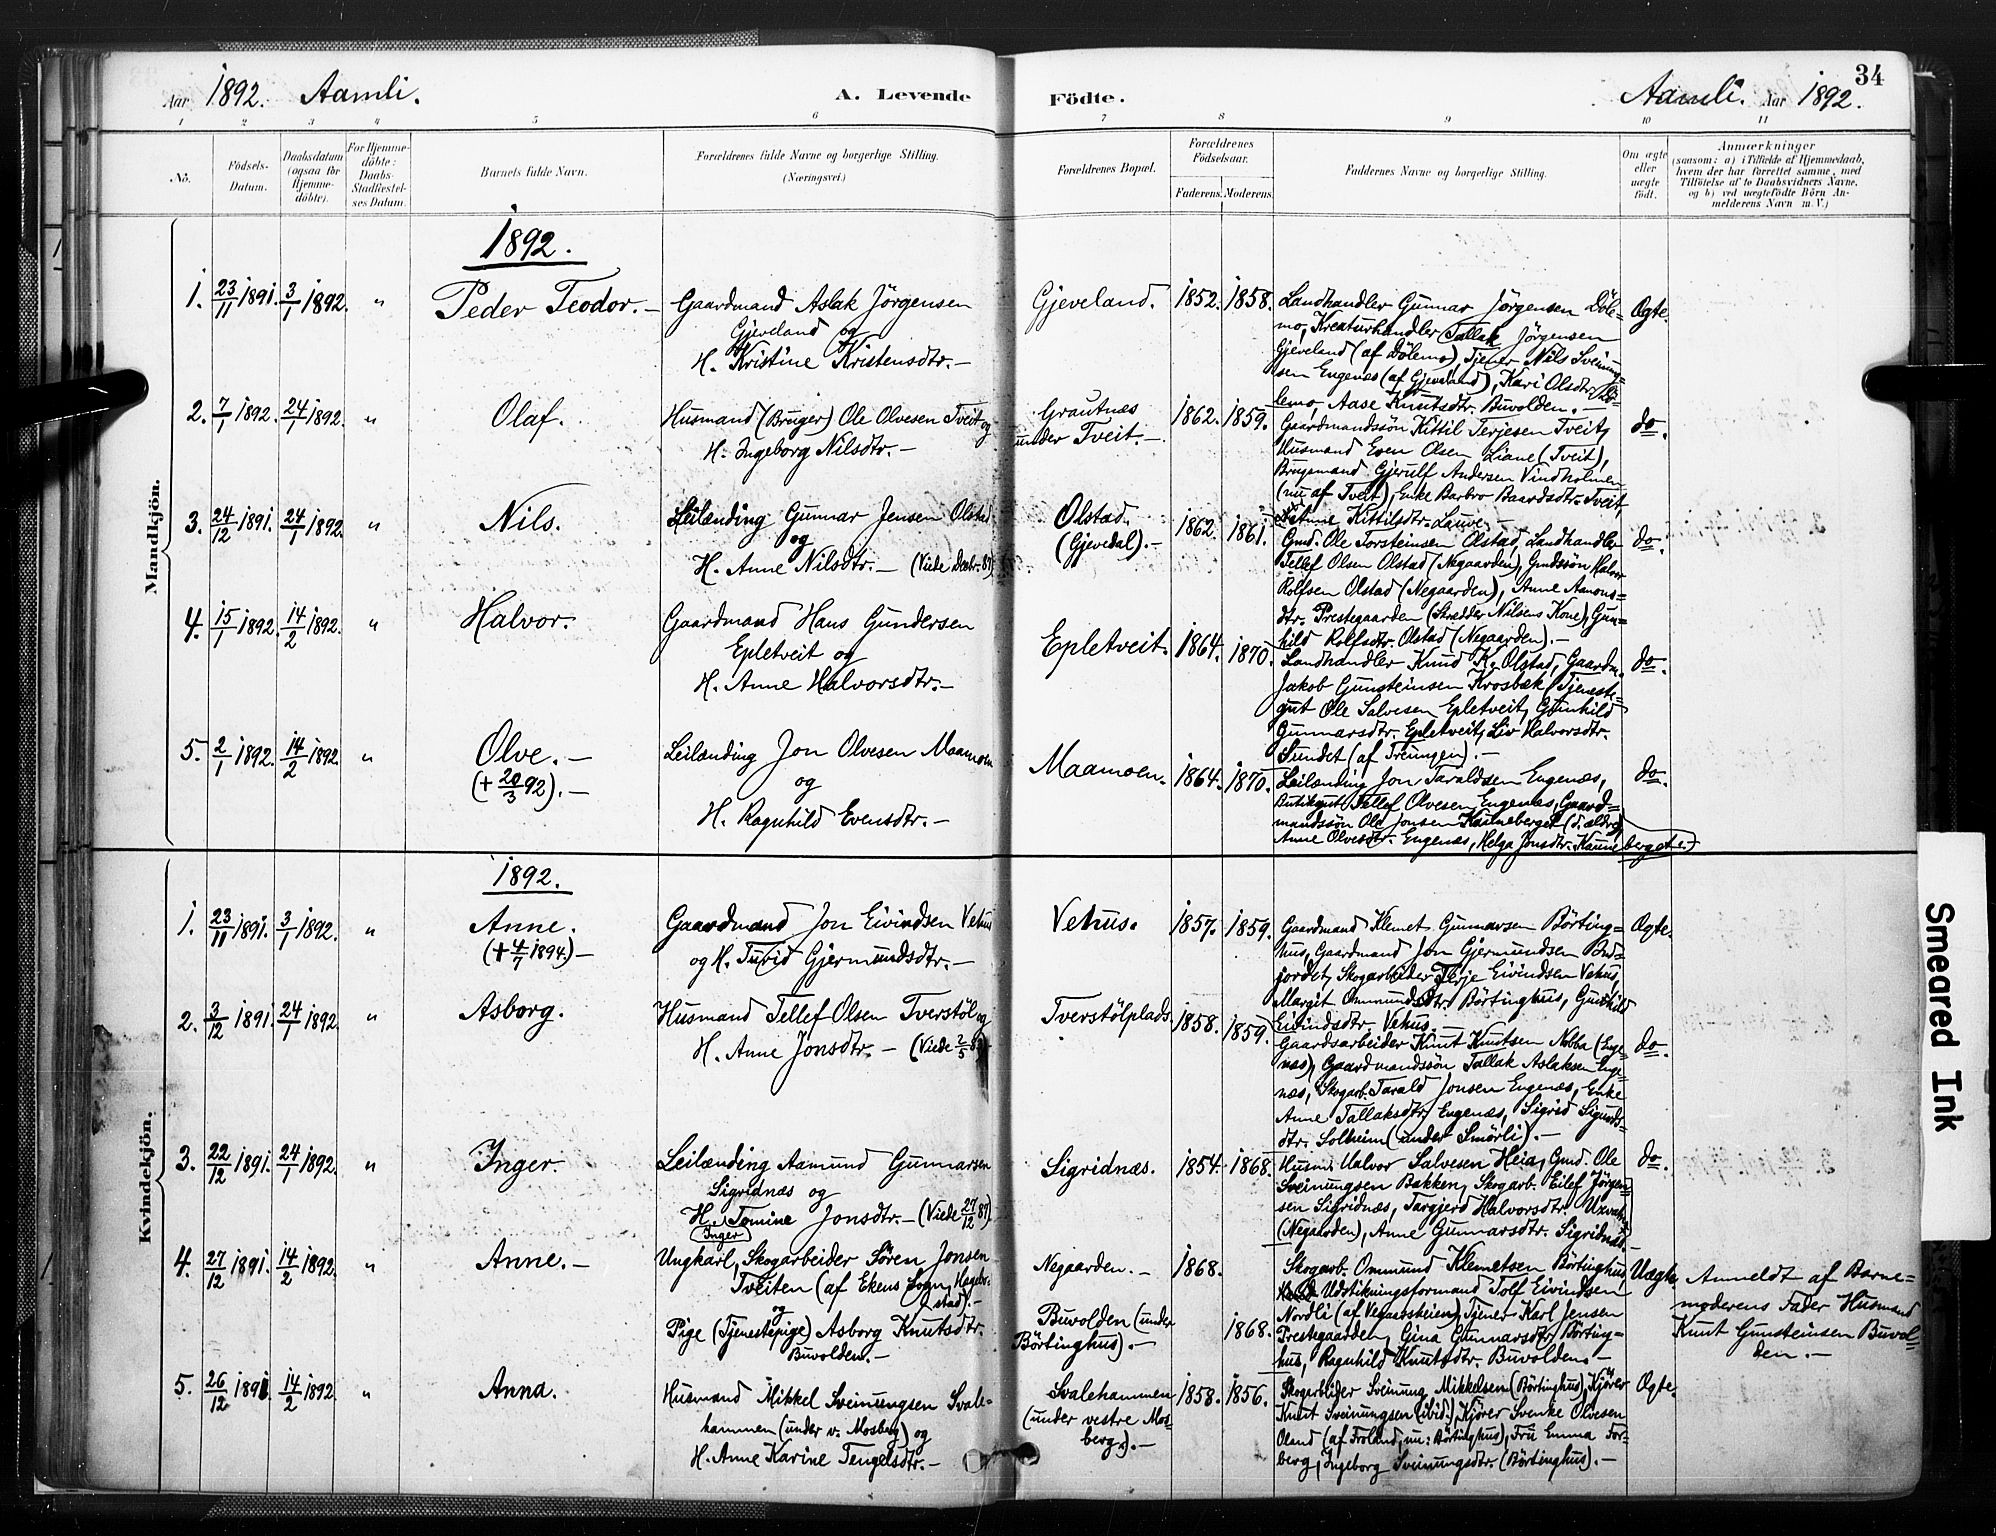 34
Aar 1892. Aamli. A. Levende Födte. Aamli. Aar 1892.
1 2 3 4 5 6 7 8 9 10 11
No.
Födsels-Datum.
Daabsdatum (ogsaa for Hjemmedöbte).
For Hjemmedöbte: Daabs-Stadfæstelses Datum.
Barnets fulde Navn.
Forældrenes fulde Navne og borgerlige Stilling.
(Næringsvei.)
Forældrenes Bopæl.
Forældrenes Födselsaar.
Faderens. Moderens.
Faddernes Navne og borgerlige Stilling.
Om ægte eller uægte födt.
Anmærkninger
(saasom: a) i Tilfælde af Hjemmedaab,
hvem der har forrettet samme, med
Tilföielse af to Daabsvidners Navne,
og b) ved uægtefödte Börn An-
melderens Navn m. V.)
Mandkjön.
1892.
1. 23/11 1891. 3/1 1892. " Peder Teodor. —
Gaardmand Aslak Jörgensen
Gjeveland og
H. Kristine Kristensdtr. —
Gjeveland. 1852. 1858.
Landhandler Gunnar Jörgensen Döle=
mo, Kreaturhandler Tallak Jörgensen
Gjeveland (af Dölemo), Tjener Nils Sveinung=
sen Engenes (af Gjeveland), Kari Olsdtr. Dö=
lemo, Aase Knutsdtr. Buvolden. —
Ægte.
2. 7/1 1892. 24/1 1892. " Olaf.
Husmand (Bruger) Ole Olvesen Tveit og
H. Ingeborg Nilsdtr. —
Grautnes
under Tveit. —
1862. 1859.
Gaardmandssön Kittil Terjesen Tveit,
Husmand Even Olsen Liane (Tveit),
Brugsmand Gjerulf Andersen Vindholmen
(nu af Tveit), Enke Barbro Baardsdtr. Tveit,
Anne Kittilsdtr. Lauve. —
do.
3. 24/12 1891. 24/1 1892. " Nils.
Leilænding Gunnar Jensen Olstad
og
H. Anne Nilsdtr. — (Viede Decbr. 87)
Olstad.
(Gjevedal). —
1862. 1861.
Gmd. Ole Torsteinsen Olstad, Landhandler
Tellef Olsen Olstad (Negaarden), Gmdssön Halvor
Rolfsen Olstad (Negaarden), Anne Aanons=
dtr. Prestegaarden (Skrædder Nilsens Kone), Gun=
hild Rolfsdtr. Olstad (Negaarden). —
do.
4. 15/1 1892. 14/2 1892. " Halvor.
Gaardmand Hans Gundersen
Epletveit og
H. Anne Halvorsdtr. —
Epletveit. 1864. 1870.
Landhandler Knud K. Olstad, Gaardm.
Jakob Gunsteinsen Krosbæk, Tjeneste=
gut Ole Salvesen Epletveit, Gunhild
Gunnarsdtr. Epletveit, Liv Halvorsdtr.
Sundet (af Treungen). —
do.
5. 2/1 1892. 14/2 1892. " Olve. —
(+ 20/3 92). —
Leilænding Jon Olvesen Maamoen
og
H. Ragnhild Evensdtr. —
Maamoen. 1864. 1870.
Leilænding Jon Taraldsen Engenæs,
Butikgut Tellef Olvesen Engenæs, Gaard=
mandssön Ole Jonsen Kauneberget (d. ældre),
Anne Olvesdtr. Engenæs, Helga Jonsdtr. Kaune
berget.)
do.
Kvindekjön.
1892.
1. 23/11 1891. 3/1 1892. " Anne.
(+ 4/7 1894.) —
Gaardmand Jon Eivindsen Vehus
og H. Turid Gjermundsdtr. —
Vehus. 1857. 1859.
Gaardmand Klemet Gunnarsen Börting=
hus, Gaardmand Jon Gjermundsen
jordet, Skogarbeider Terje Eivindsen Vehus,
Margit Ommundsdtr. Börtinghus, Gunhild
Eivindsdtr. Vehus.
Ægte.
2. 3/12 1891. 24/1 1892. " Asborg.
Husmand Tellef Olsen Tverstöl og
H. Anne Jonsdtr. — (Viede 2/5
Tverstölplads. 1858. 1859.
Gaardsarbeider Knut Knutsen Nobba (Enge=
næs), Gaardmandssön Tallak Aslaksen Enge=
næs, Skogarb. Tarald Jonsen Engenæs, Enke
Anne Tallaksdtr. Engenæs, Sigrid Sigurds=
dtr. Solheim (under Smörli). —
do.
3. 22/12 1891. 24/1 1892. " Inger.
Leilænding Aamund Gunnarsen
Sigridnæs og
H. Tomine Jonsdtr. — (Viede 27/12 87)
(Inger)
Sigridnæs. 1854. 1868.
Husm. Halvor Salvesen Heia, Gmd. Ole
Sveinungsen Bakken, Skogarb. Eilef Jörgen=
sen Sigridnæs, Targjerd Halvorsdtr.
(Negaarden), Anne Gunnarsdtr. Sigridnæs.
do.
4. 27/12 1891. 14/2 1892. " Anne. —
Ungkarl, Skogarbeider Sören Jonsen
Tveiten (af Ekens Sogn, Hægebo=
stad). —
og
Pige (Tjenestepige) Asborg Knutsdtr.
Buvolden. —
Negaarden. — 1868.
Buvolden (under
Börtinghus). —
1868.
Skogarb. Ommund Klemetsen Börtinghus,
Udstikningsformand Tolf Eivindsen
Nordli (af Vegaarsheien), Tjener Karl Jensen
Prestegaarden, Gina Gunnarsdtr. Börting=
hus, Ragnhild Knutsdtr. Buvolden. —
Uægte.
Anmeldt af Barne=
moderens Fader Husmand
Knut Gunsteinsen Buvol=
den. —
5. 26/12 1891. 14/2 1892. " Anna.
Husmand Mikkel Sveinungsen Svale=
hammen (under v. Mosberg) og
H. Anne Karine Tengelsdtr. —
Svalehammen
(under vestre Mos=
berg). —
1858. 1856.
Skogarbeider Sveinung Mikkelsen (Börtinghus), Kjörer
Knut Sveinungsen (ibid.), Kjörer Svenke Olvesen
Oland (af Froland, nu: Börtinghus), Fru Emma Tor=
berg, Ingeborg Sveinungsdtr. (Börtinghus). —
Ægte.
Smeared Ink